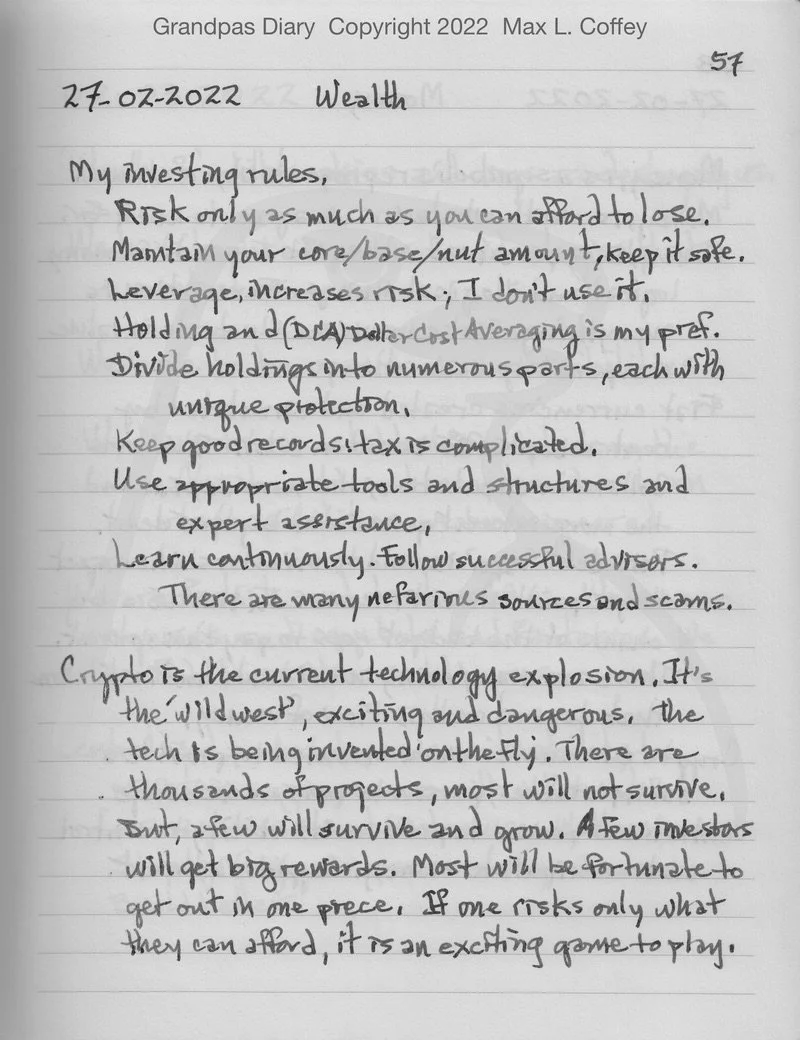 Grandpas Diary Copyright 2022 Max L. Coffey
57
27-02-2022 Wealth
My investing rules,
Risk only as much as you can afford to lose.
Maintain your core/base/nut amount, keep it safe.
Leverage, increases risk; I don't use it.
Holding and (DCA) Dollar Cost Averaging is my pref.
Divide holdings into numerous parts, each with
unique protection.
Keep good records! tax is complicated.
Use appropriate tools and structures and
expert assistance,
Learn continuously. Follow successful advisors.
There are many nefarious sources and scams.
Crypto is the current technology explosion. It's
the 'wild west', exciting and dangerous. The
tech is being invented 'on the fly'. There are
thousands of projects, most will not survive.
But, a few will survive and grow. A few investors
will get big rewards. Most will be fortunate to
get out in one piece. If one risks only what
they can afford, it is an exciting game to play.